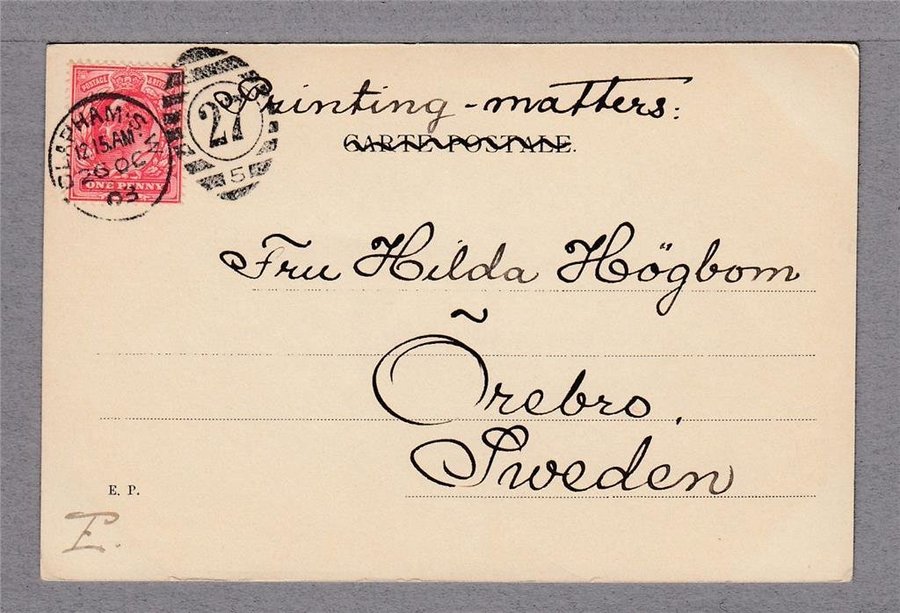 POSTAGE
ONE PENNY
CLAPHAM·S
12 15.AM
OC
03
27
5
Printing-matters:
CARTE POSTALE.
Fru Hilda Högbom
Örebro.
Sweden
E. P.
E.